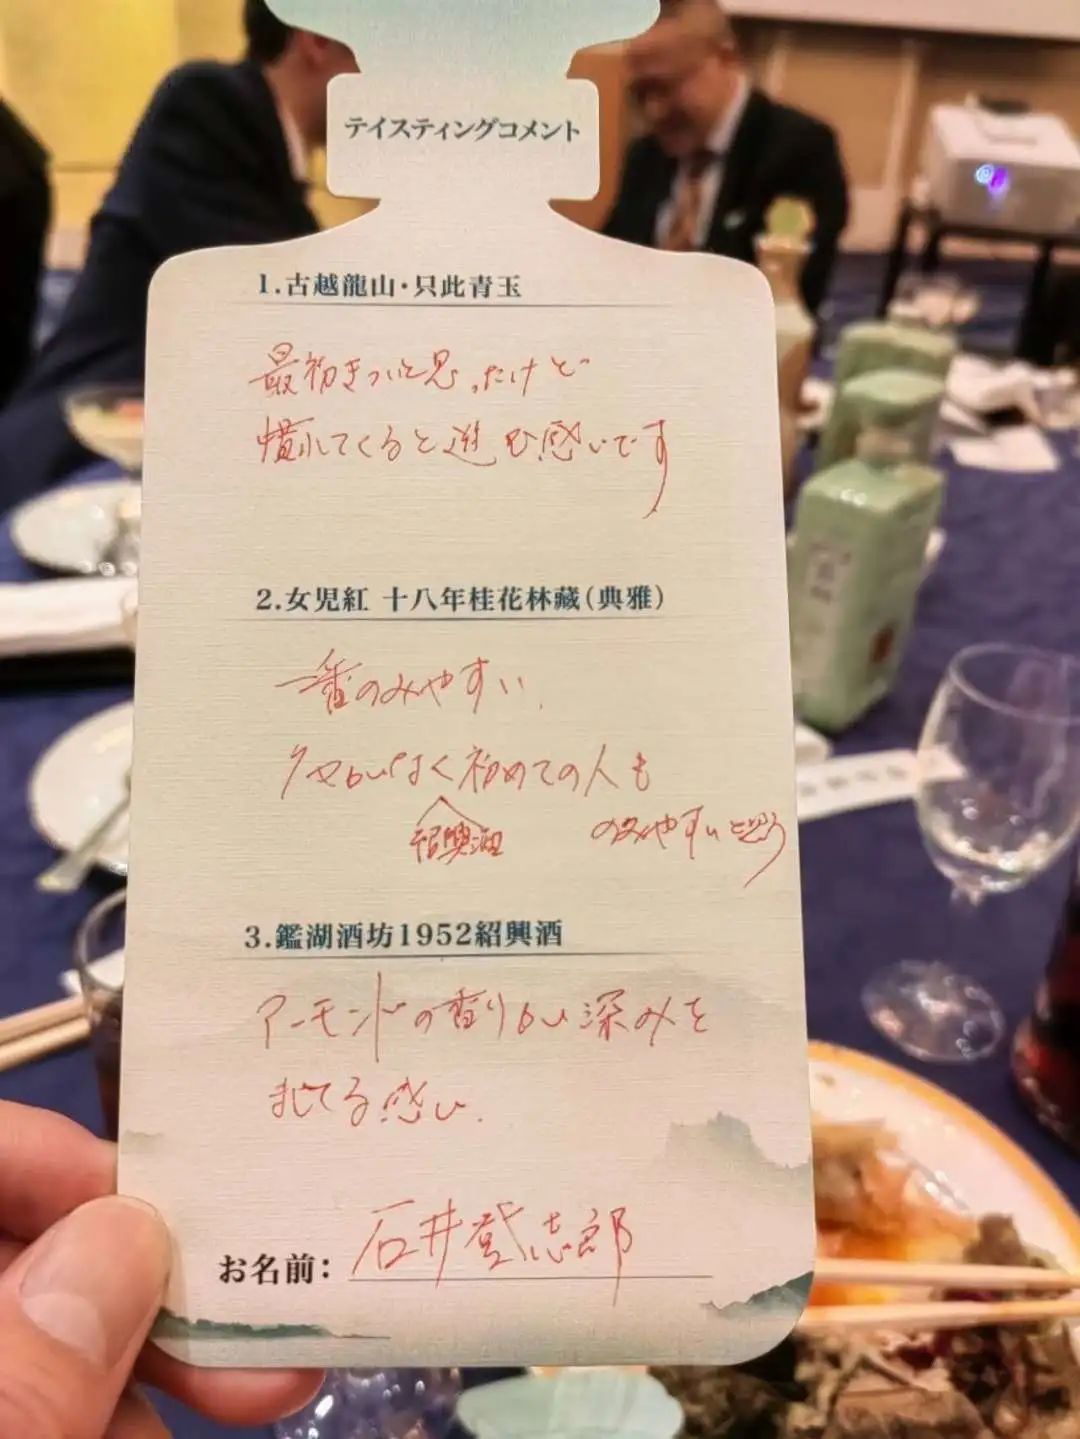 テイスティングコメント
1.古越龍山・只此青玉
最初きついと思ったけど
慣れてくると進む感じです
2.女児紅 十八年桂花林藏(典雅)
一番のみやすい
クセもなく初めての人も
紹興酒 のみやすいと思う
3.鑑湖酒坊1952紹興酒
アーモンドの香りもい深みを
ましてる感じ
お名前: 石井登志郎